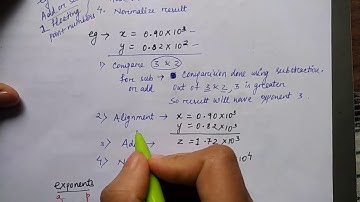 Add or su
1. Floating
point numbers
4. Normalize result
eg → x = 0.90 × 10³
y = 0.82 × 10²
1) Compare 3 & 2
for sub or add → Comparision done using subtractive.
Out of 3 & 2, 3 is greater
So result will have exponent 3.
2) Alignment → x = 0.90 × 10³
y = 0.82 × 10³
3) Ad → z = 1.72 × 10³
4) N 10⁴
exponents